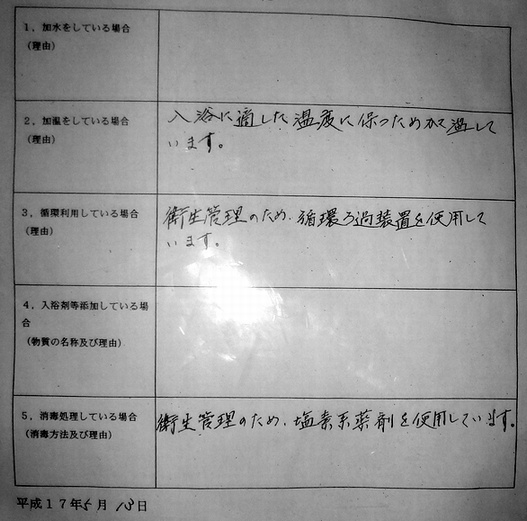 1，加水をしている場合
（理由）
2，加温をしている場合
（理由）
入浴に適した温度に保つため加温して
います。
3，循環利用している場合
（理由）
衛生管理のため、循環ろ過装置を使用して
います。
4，入浴剤等添加している場
合
（物質の名称及び理由）
5，消毒処理している場合
（消毒方法及び理由）
衛生管理のため、塩素系薬剤を使用しています。
平成１７年5月13日